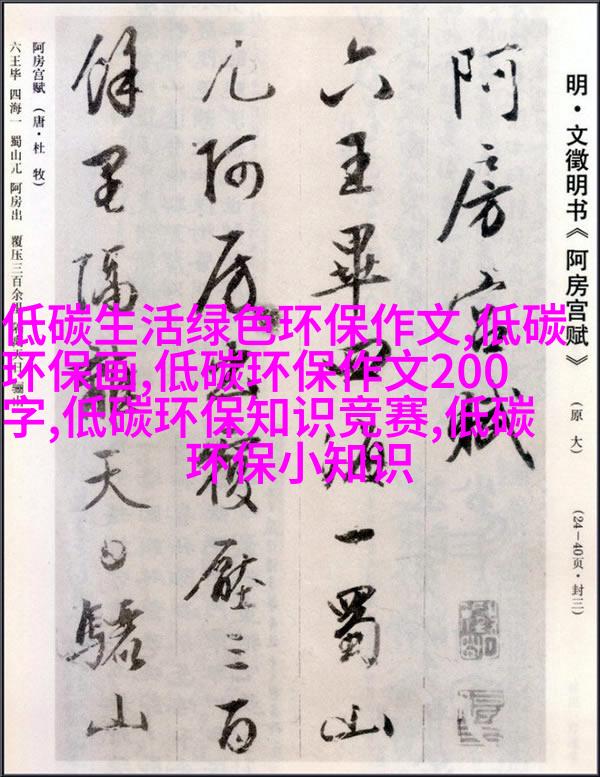 明·文徵明书《阿房宫赋》
(原大)
(24—40页·封三)
阿房宫赋
六王畢四海一蜀山
兀阿房出覆壓三百
餘里隔離天日驪山
阿房宫赋(唐·杜牧)
六王毕 四海一 蜀山兀 阿房出 覆压三百余
低碳生活绿色环保作文,低碳
环保画,低碳环保作文200
字,低碳环保知识竞赛,低碳
环保小知识